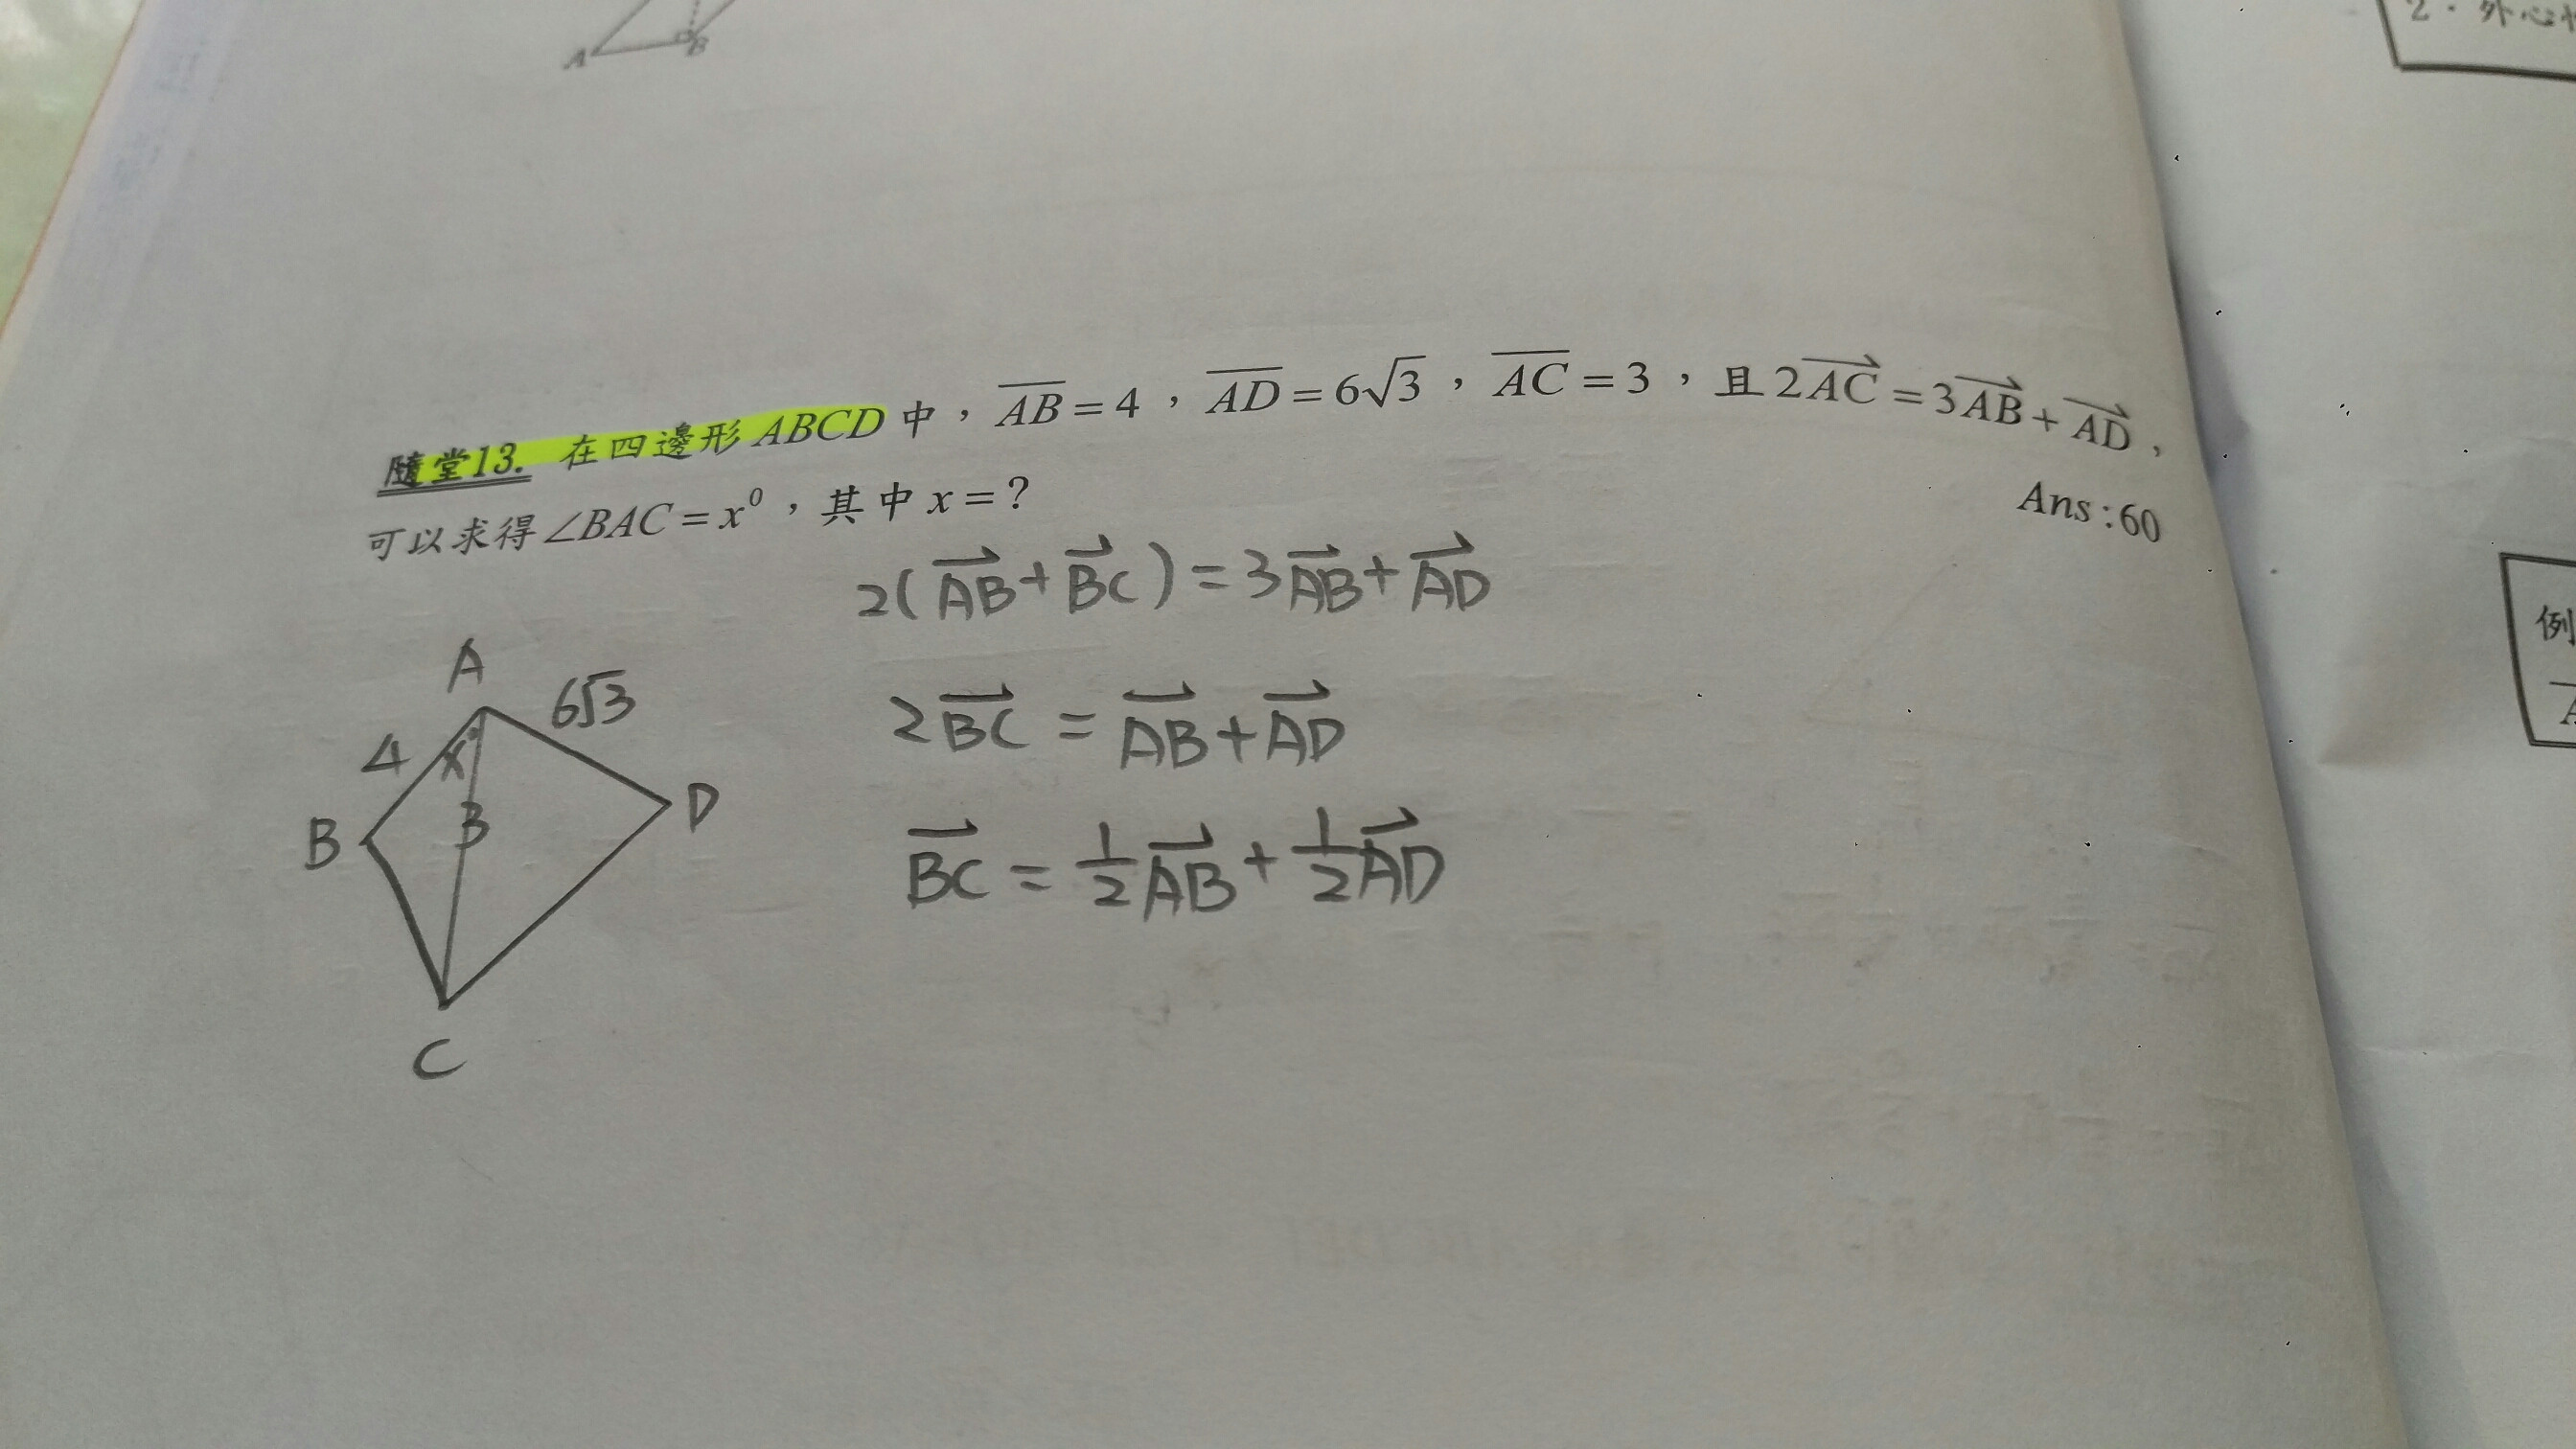 A B
2．外心
隨堂13. 在四邊形ABCD中，AB=4，AD=6√3，AC=3，且2AC=3AB+AD，
可以求得∠BAC=x⁰，其中x=？
Ans:60
2(AB+BC)=3AB+AD
A
6√3
4
x°
2BC=AB+AD
B
3
D
BC=½AB+½AD
C
例
A